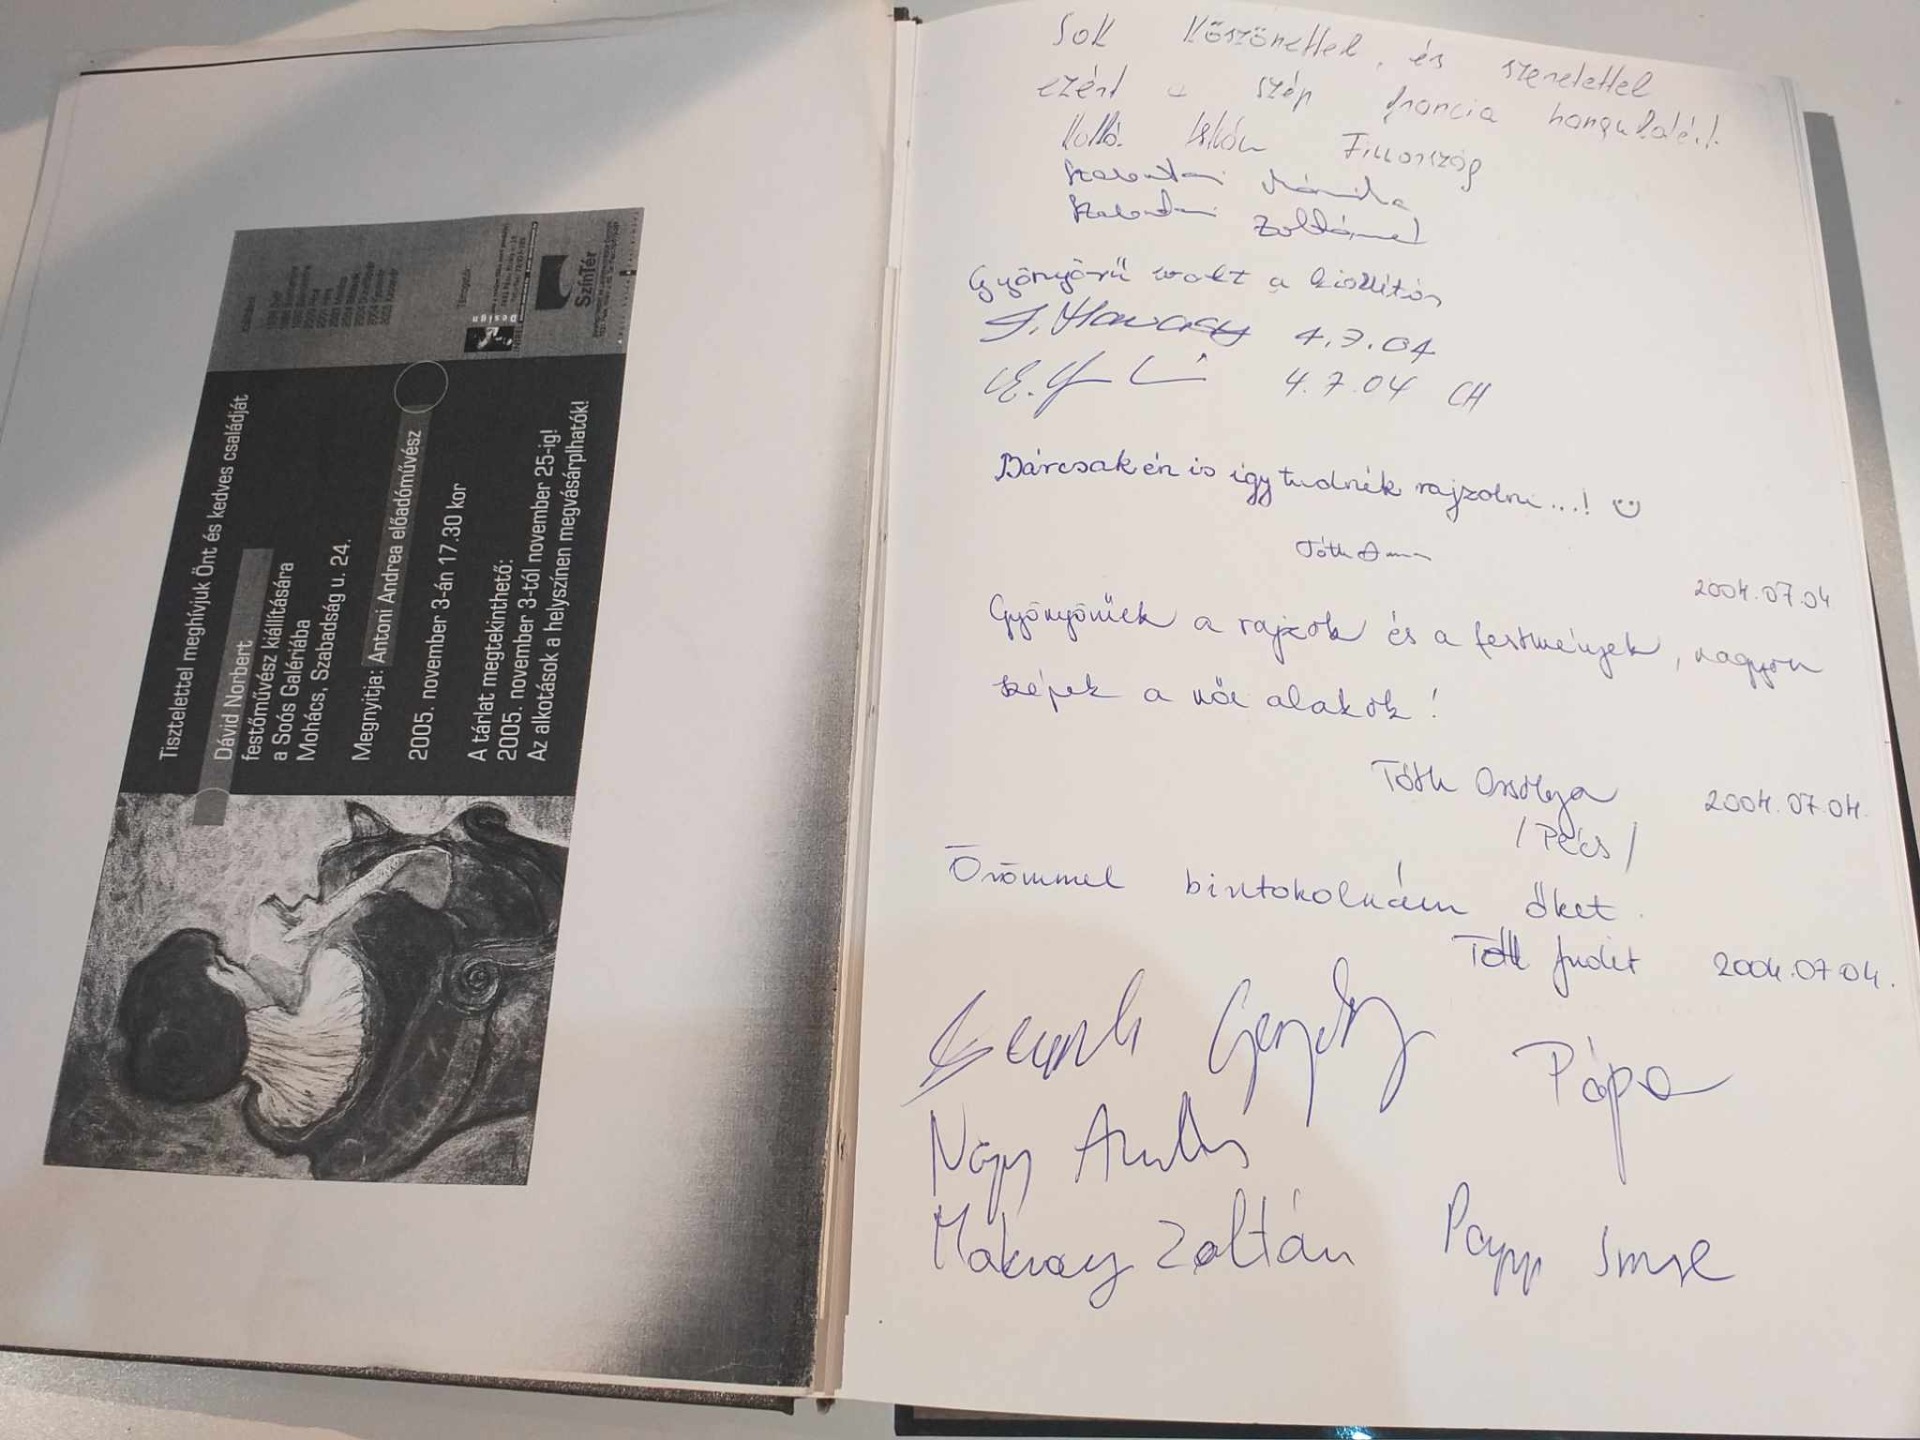 Tisztelettel meghívjuk Önt és kedves családját
Dávid Norbert
festőművész kiállítására
a Soós Galériába
Mohács, Szabadság u. 24.
Megnyitja: Antoni Andrea előadóművész
2005. november 3-án 17.30 kor
A tárlat megtekinthető:
2005. november 3-tól november 25-ig!
Az alkotások a helyszínen megvásárplhatók!
Támogatók:
Design
SzínTér
Sok Köszönettel, és szeretettel
ezért a szép francia hangulatért.
Finnország
Zoltánnal
Gyönyörű volt a kiállítás
4.7.04
4.7.04 CH
Bárcsak én is így tudnék rajzolni...! ☺
Tóth Anna
2004.07.04
Gyönyörűek a rajzok és a festmények, nagyon
szépek a női alakok!
Tóth Orsolya 2004.07.04.
/Pécs/
Örömmel birtokolnám őket.
Tóth Judit 2004.07.04.
Gergely Pápa
Nagy András
Makray Zoltán Papp Imre